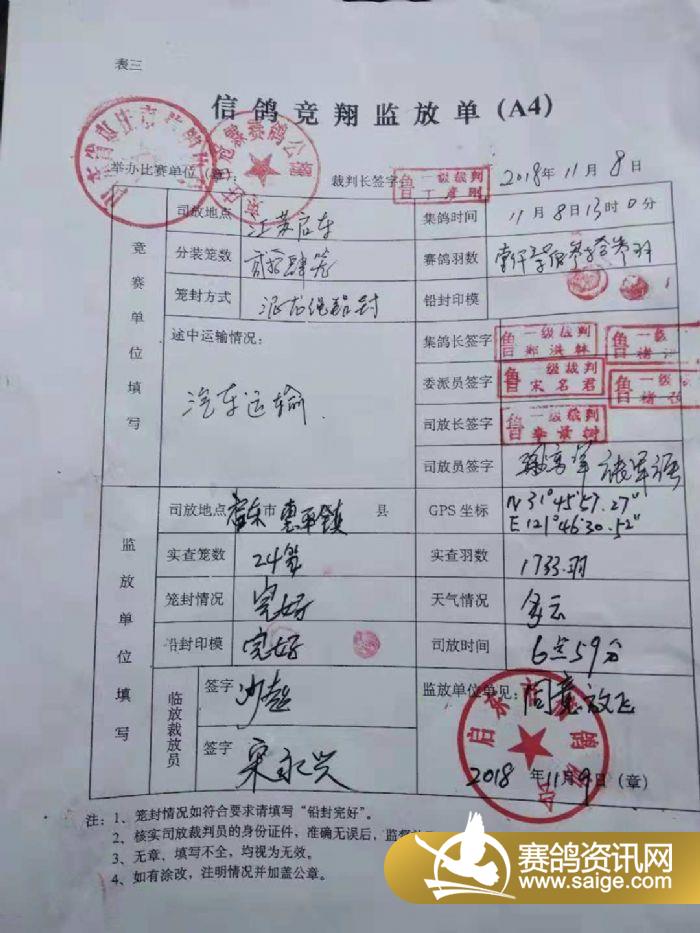 表三
信鸽竞翔监放单(A4)
举办比赛单位(章):
裁判长签字:
鲁 一级裁判
2018年11月8日
竞赛单位填写
司放地点 江苏启东
集鸽时间 11月8日13时0分
分装笼数 贰拾肆笼
赛鸽羽数
笼封方式
铅封印模
途中运输情况:
汽车运输
集鸽长签字 鲁 一级裁判
委派员签字 鲁 一级裁判 宋名君
司放长签字 鲁 一级裁判 李景树
司放员签字
监放单位填写
司放地点 启东市 惠平镇 县
GPS坐标 N 31°45'57.27"
E 121°46'30.52"
实查笼数 24笼
实查羽数 1733.羽
笼封情况 完好
天气情况 多云
铅封印模 完好
司放时间 6点59分
临放裁放员
签字
签字 宋永兴
监放单位意见: 同意放飞
2018年11月9日(章)
注:1、笼封情况如符合要求请填写“铅封完好”。
2、核实司放裁判员的身份证件,准确无误后,监督
3、无章、填写不全,均视为无效。
4、如有涂改,注明情况并加盖公章。
赛鸽资讯网
www.saige.com